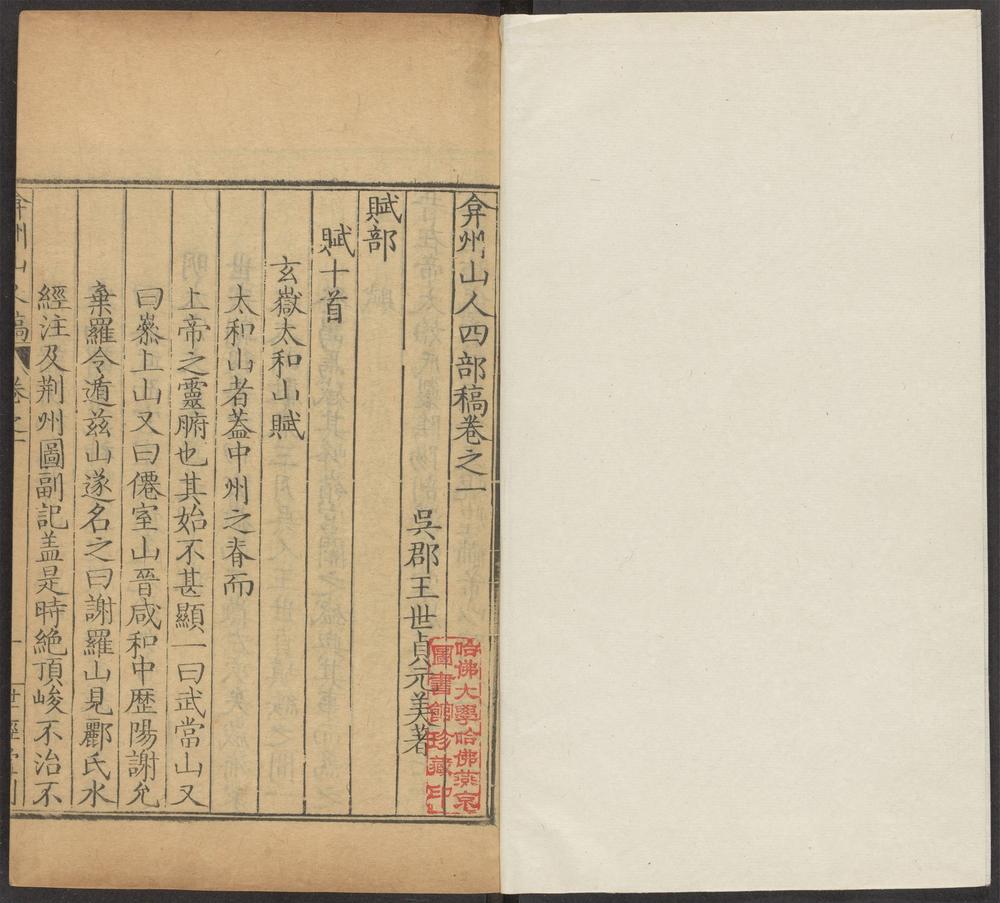 弇州山人四部稿卷之一
吳郡王世貞元美著
賦部
賦十首
玄嶽太和山賦
太和山者蓋中州之脊而
上帝之靈腑也其始不甚顯一曰武當山又
曰嵾上山又曰僊室山晉咸和中歷陽謝允
棄羅令遁茲山遂名之曰謝羅山見酈氏水
經注及荆州圖副記盖是時絶頂峻不治不
弇州山人稿 卷之一 一 世經堂刻
哈佛大學哈佛燕京
圖書館珍藏印